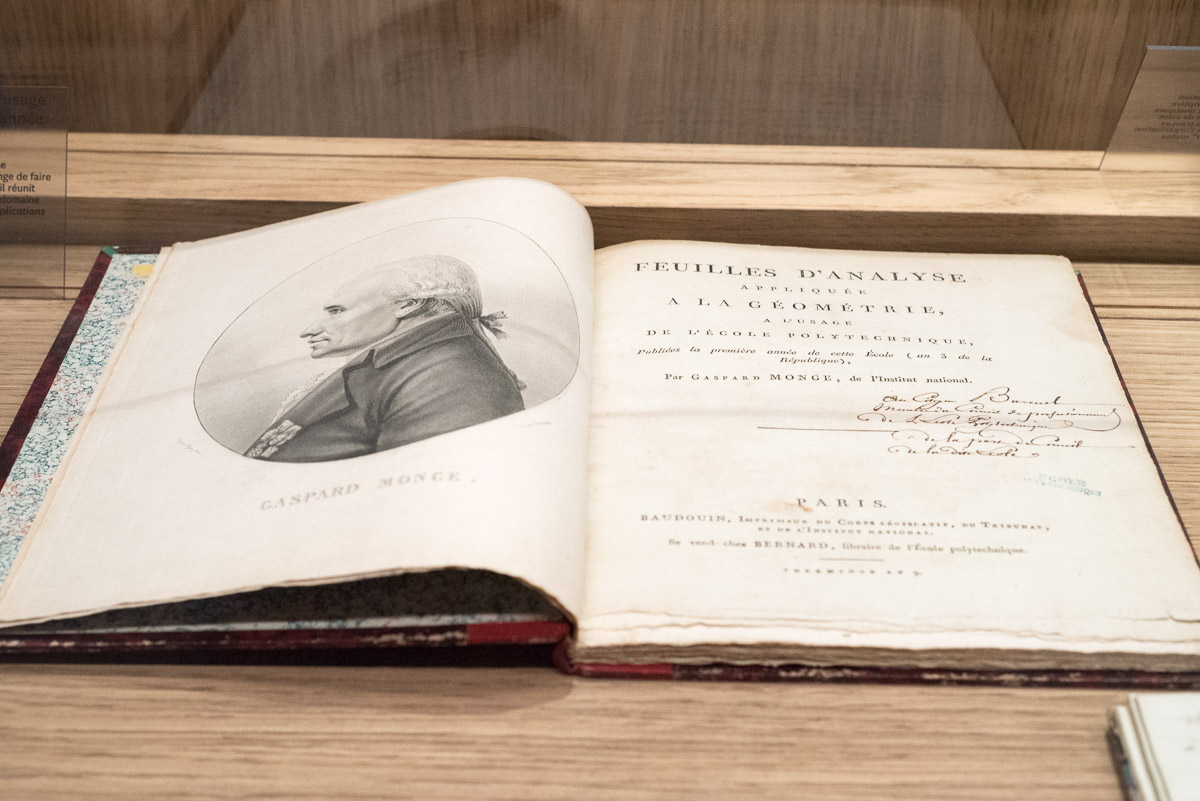 usage
année
e
nge de faire
il réunit
domaine
plications
GASPARD MONGE.
FEUILLES D'ANALYSE
APPLIQUÉE
A LA GÉOMÉTRIE,
A L'USAGE
DE L'ÉCOLE POLYTECHNIQUE,
Publiées la première année de cette École (an 3 de la
République),
Par GASPARD MONGE, de l'Institut national.
du Conseil
de la dite Ecole
ÉCOLE
PARIS.
BAUDOUIN, IMPRIMEUR DU CORPS LÉGISLATIF, DU TRIBUNAT,
ET DE L'INSTITUT NATIONAL.
Se vend chez BERNARD, libraire de l'École polytechnique.
THERMIDOR AN 9.